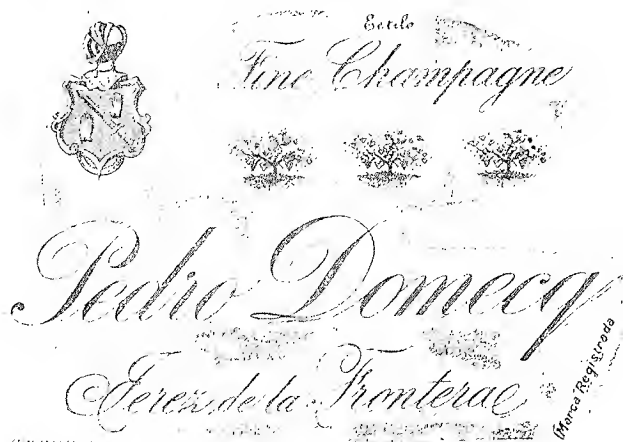 Estilo
Fine Champagne
Pedro Domecq
Jerez de la Frontera
(Marca Registrada